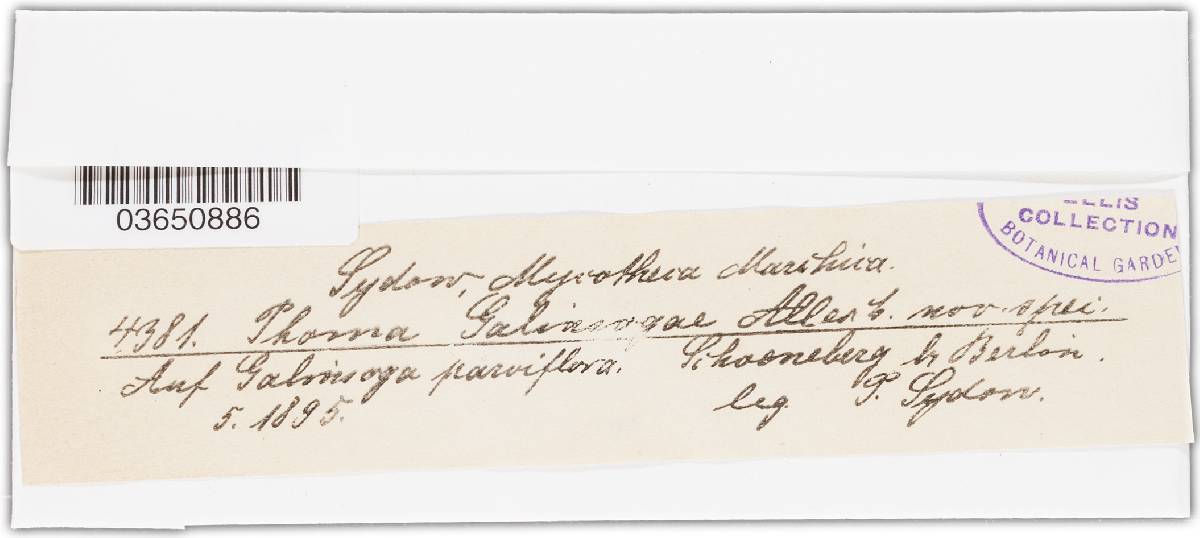 03650886
ELLIS
COLLECTION
BOTANICAL GARDE
Sydow, Mycotheca Marchica.
4381. Phoma Galinsogae Allesch. nov. spei.
Auf Galinsoga parviflora. Schoeneberg b. Berlin.
5. 1895. leg. P. Sydow.